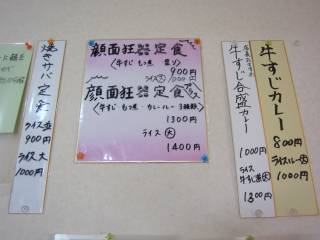 焼きサバ定食
ライス並
900円
ライス大
1000円
顔面狂器定食
(牛すじ もつ煮
900円
顔面狂器定食
(牛すじ・もつ煮・カレールー 3種類)
1300円
ライス大
1400円
牛すじカレー
800円
ライスルー大
1000円
店長おすすめ
牛すじ合盛カレー
1000円
ライス
1300円